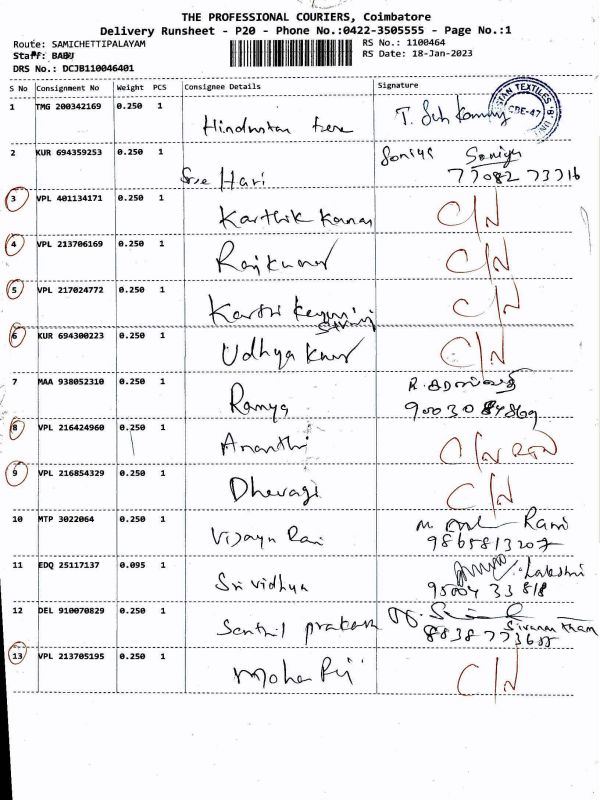 THE PROFESSIONAL COURIERS, Coimbatore
Delivery Runsheet - P20 - Phone No.:0422-3505555 - Page No.:1
Route: SAMICHETTIPALAYAM RS No.: 1100464
Staff: BABU RS Date: 18-Jan-2023
DRS No.: DCJB110046401
S No Consignment No Weight PCS Consignee Details Signature
1 TMG 200342169 0.250 1
Hindustan
CBE-47
2 KUR 694359253 0.250 1
Sree Hari 77082 73316
3 VPL 401134171 0.250 1
Karthik C/N
4 VPL 213706169 0.250 1
Rajkumar C/N
5 VPL 217024772 0.250 1
C/N
6 KUR 694300223 0.250 1
Udhya C/N
7 MAA 938052310 0.250 1
Ramya 90030 84869
8 VPL 216424960 0.250 1
Ananthi C/N RTN
9 VPL 216854329 0.250 1
C/N
10 MTP 3022064 0.250 1 Rani
9865813207
11 EDQ 25117137 0.095 1
Sri vidhya 95004 33 818
12 DEL 910070829 0.250 1
Senthil prakash
13 VPL 213705195 0.250 1
C/N